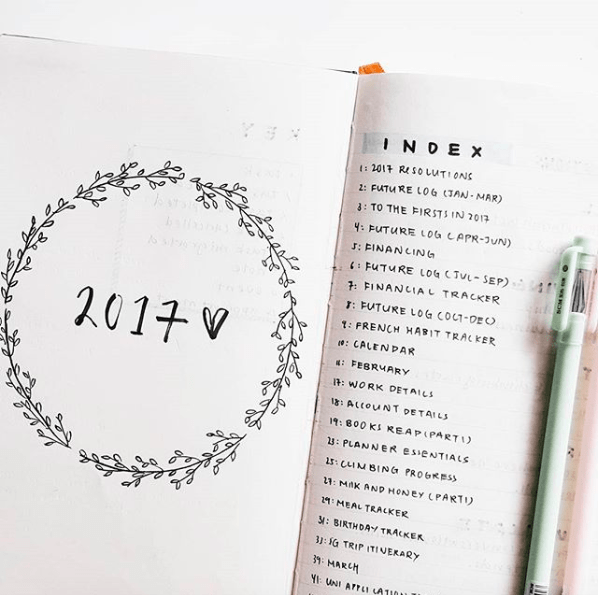 2017
INDEX
1: 2017 RESOLUTIONS
2: FUTURE LOG (JAN-MAR)
3: TO THE FIRSTS IN 2017
4: FUTURE LOG (APR-JUN)
5: FINANCING
6: FUTURE LOG (JUL-SEP)
7: FINANCIAL TRACKER
8: FUTURE LOG (OCT-DEC)
9: FRENCH HABIT TRACKER
10: CALENDAR
11: FEBRUARY
17: WORK DETAILS
18: ACCOUNT DETAILS
19: BOOKS READ (PART1)
23: PLANNER ESSENTIALS
25: CLIMBING PROGRESS
27: MILK AND HONEY (PART1)
29: MEAL TRACKER
31: BIRTHDAY TRACKER
33: SG TRIP ITINERARY
39: MARCH
41: UNI